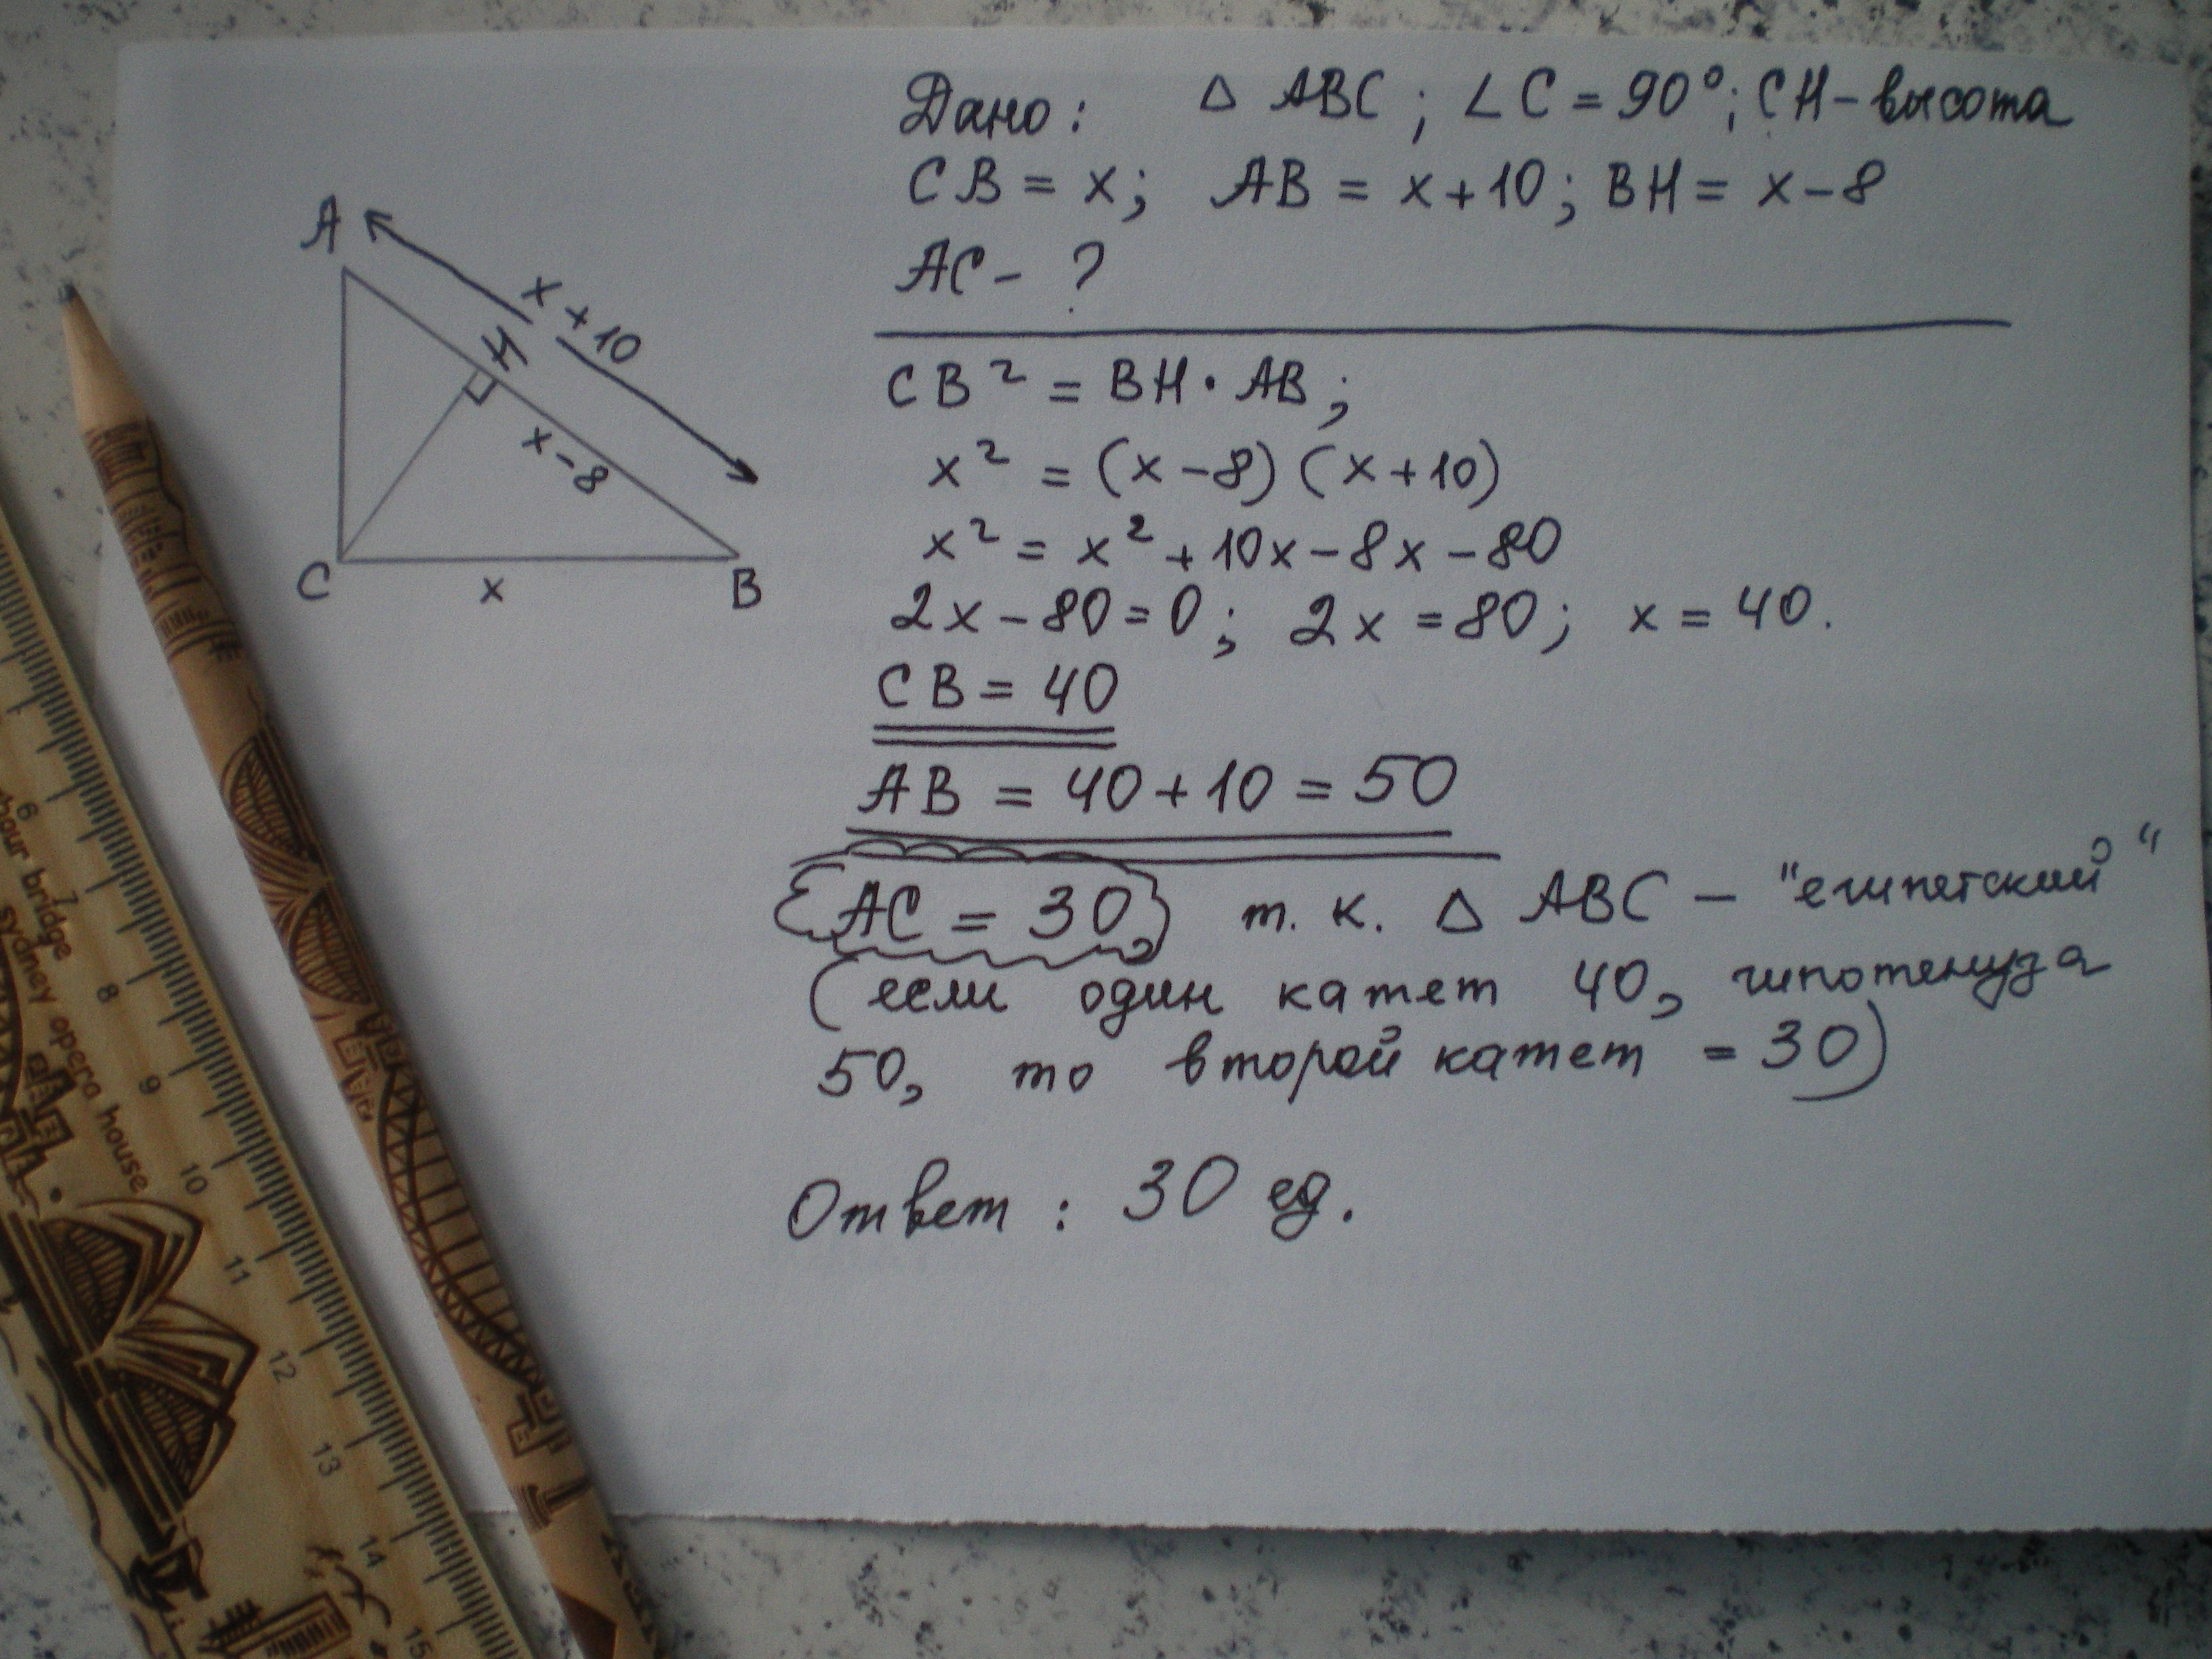 Дано: △ ABC; ∠C = 90°; CH - высота
CB = x; AB = x+10; BH = x-8
AC - ?
A
x+10
H
x-8
C
x
B
CB² = BH · AB;
x² = (x-8)(x+10)
x² = x² + 10x - 8x - 80
2x - 80 = 0; 2x = 80; x = 40.
CB = 40
AB = 40 + 10 = 50
AC = 30, т. к. △ ABC - "египетский"
(если один катет 40, гипотенуза
50, то второй катет = 30)
Ответ: 30 ед.
6
7
8
9
10
11
12
13
14
15
our bridge
sydney opera house